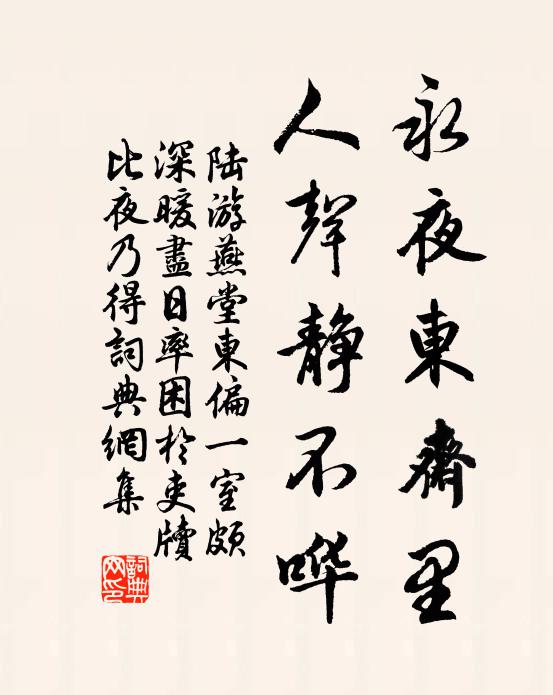 永夜東齋里
人聲静不哗
陆游燕堂東偏一室頗
深暖盡日率困於吏牘
比夜乃得詞典網集
詞典
网印